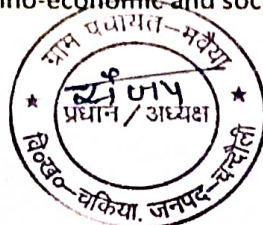 no-economic and soc
ग्राम पंचायत–मवैया
प्रधान / अध्यक्ष
वि०ख०–चकिया, जनपद–चन्दौली